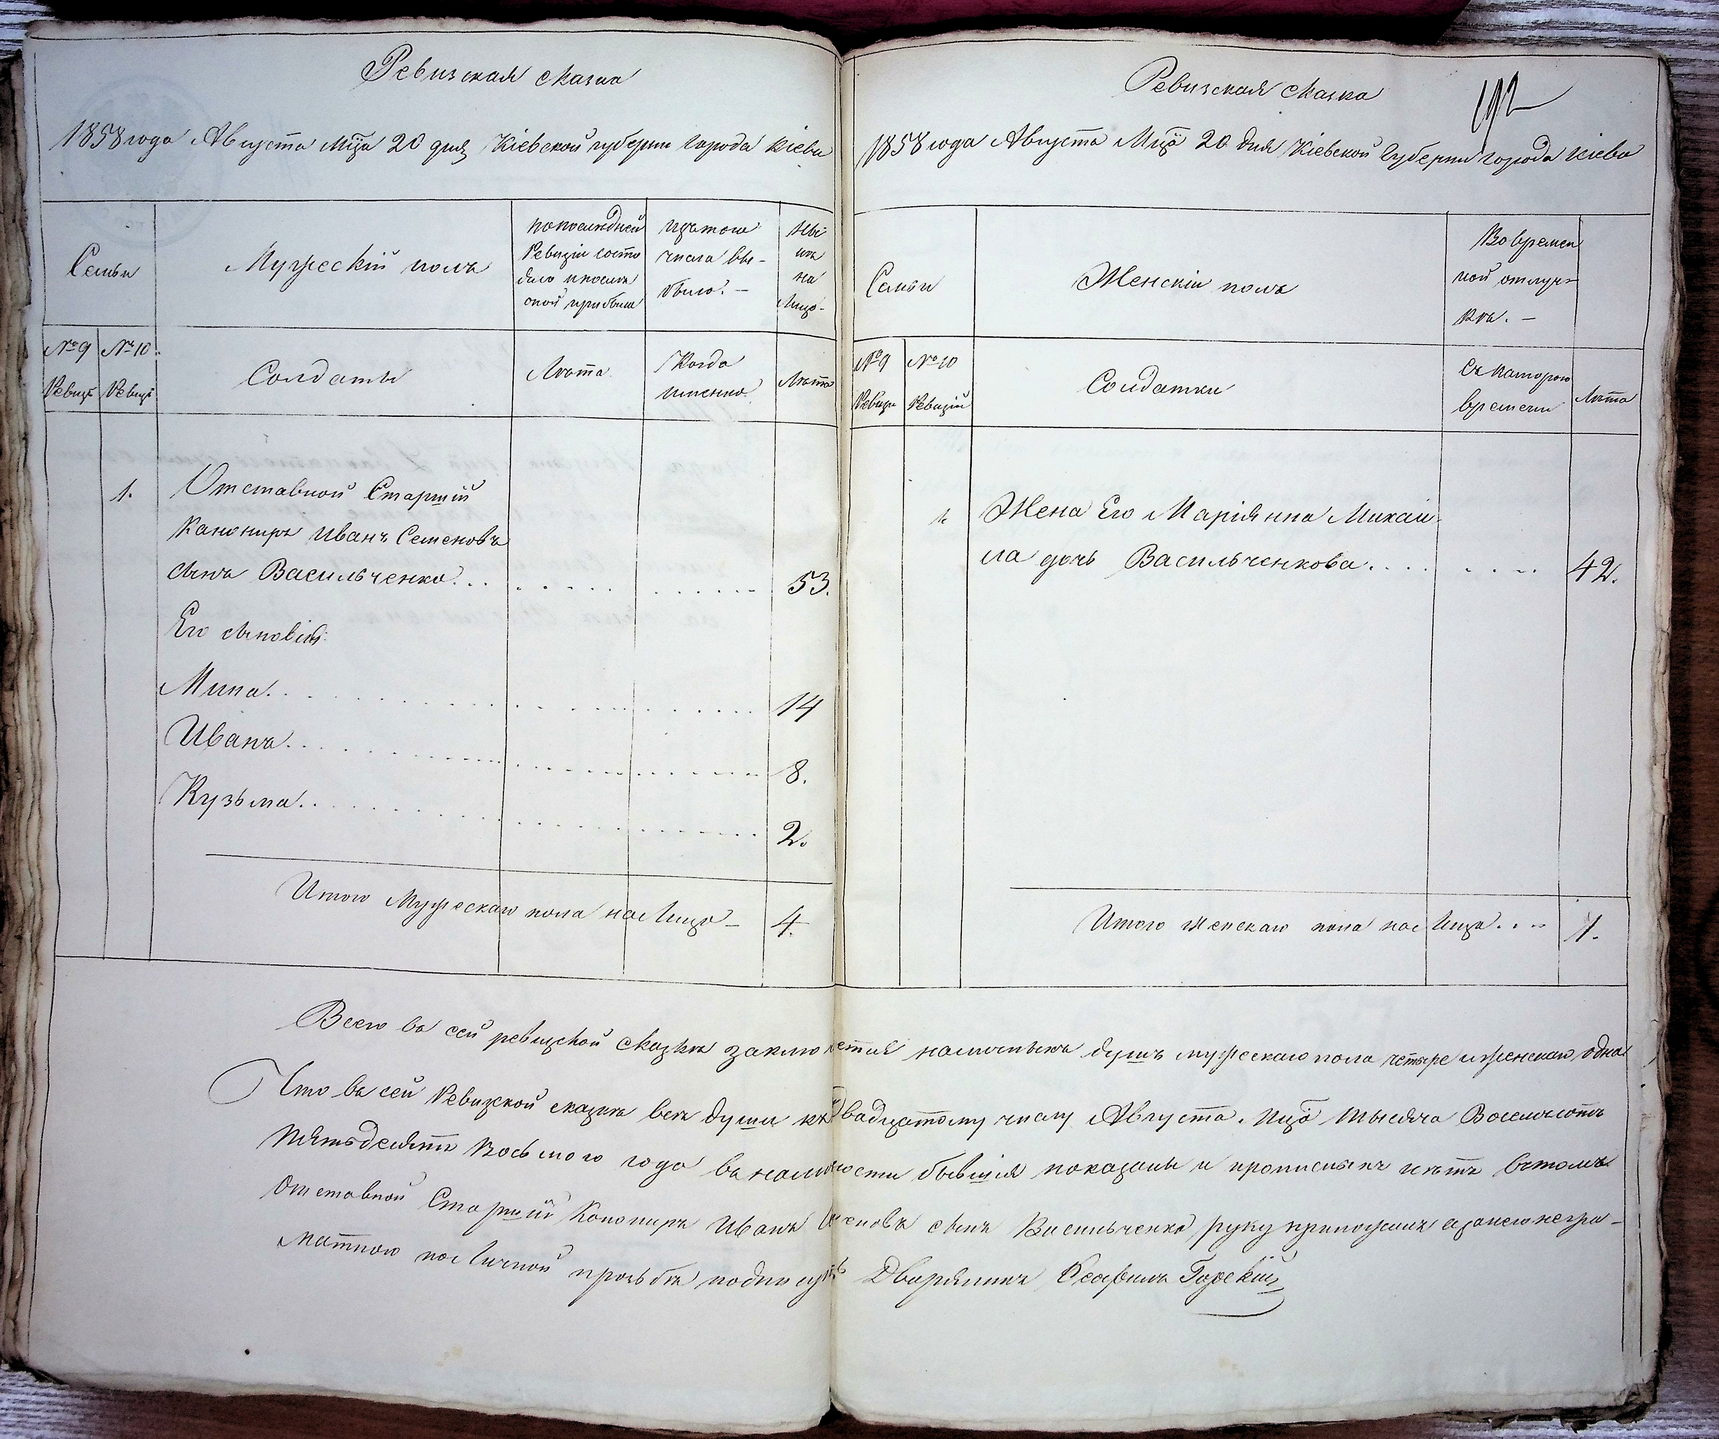 Ревизская сказка
1858 года Августа Мца 20 дня Кіевской губерни города Кіева
Семьи
Мужескій полъ
по последней
Ревизіи состо
яло и после
оной прибыло
изъ того
числа вы-
было. -
Ны
не
на
Лицо-
№ 9
Ревиз
№ 10.
Ревиз
Солдаты
Лета
Когда
именно
Лета
1.
Отставной Старшій
Канониръ Иванъ Семеновъ
сынъ Васильченко. . . 53.
Его сыновія:
Мина. 14
Иванъ. 8.
Кузьма. 2.
Итого Мужескаго пола на Лицо - 4.
Ревизская сказка
192
1858 года Августа Мца 20 дня Кіевской Губерни города Кіева
Семьи
Женскій полъ
Во времен
ной отлуч-
ке. -
№ 9
Ревизи
№ 10
Ревизіи
Солдатки
Съ которого
времени
Лета
1.
Жена Его Маріянна Михаи-
ла дочь Васильченкова. . . . 42.
Итого женскаго пола на Лицо. . . . 1.
Всего въ сей ревизской сказке заключается наличныхъ душъ мужескаго пола четыре и женскаго одна
Что въ сей Ревизской сказке все души къ Двадцатому числу Августа Мца тысяча Восемьсотъ
пятьдесятъ Восьмого года въ наличности бывшія показаны и прописныхъ нетъ въ томъ
Отставной Старшій Канониръ Иванъ Семеновъ сынъ Васильченко руку приложилъ а за него негра-
матного по Личной прозьбе подписалъ Дворянинъ Горскій